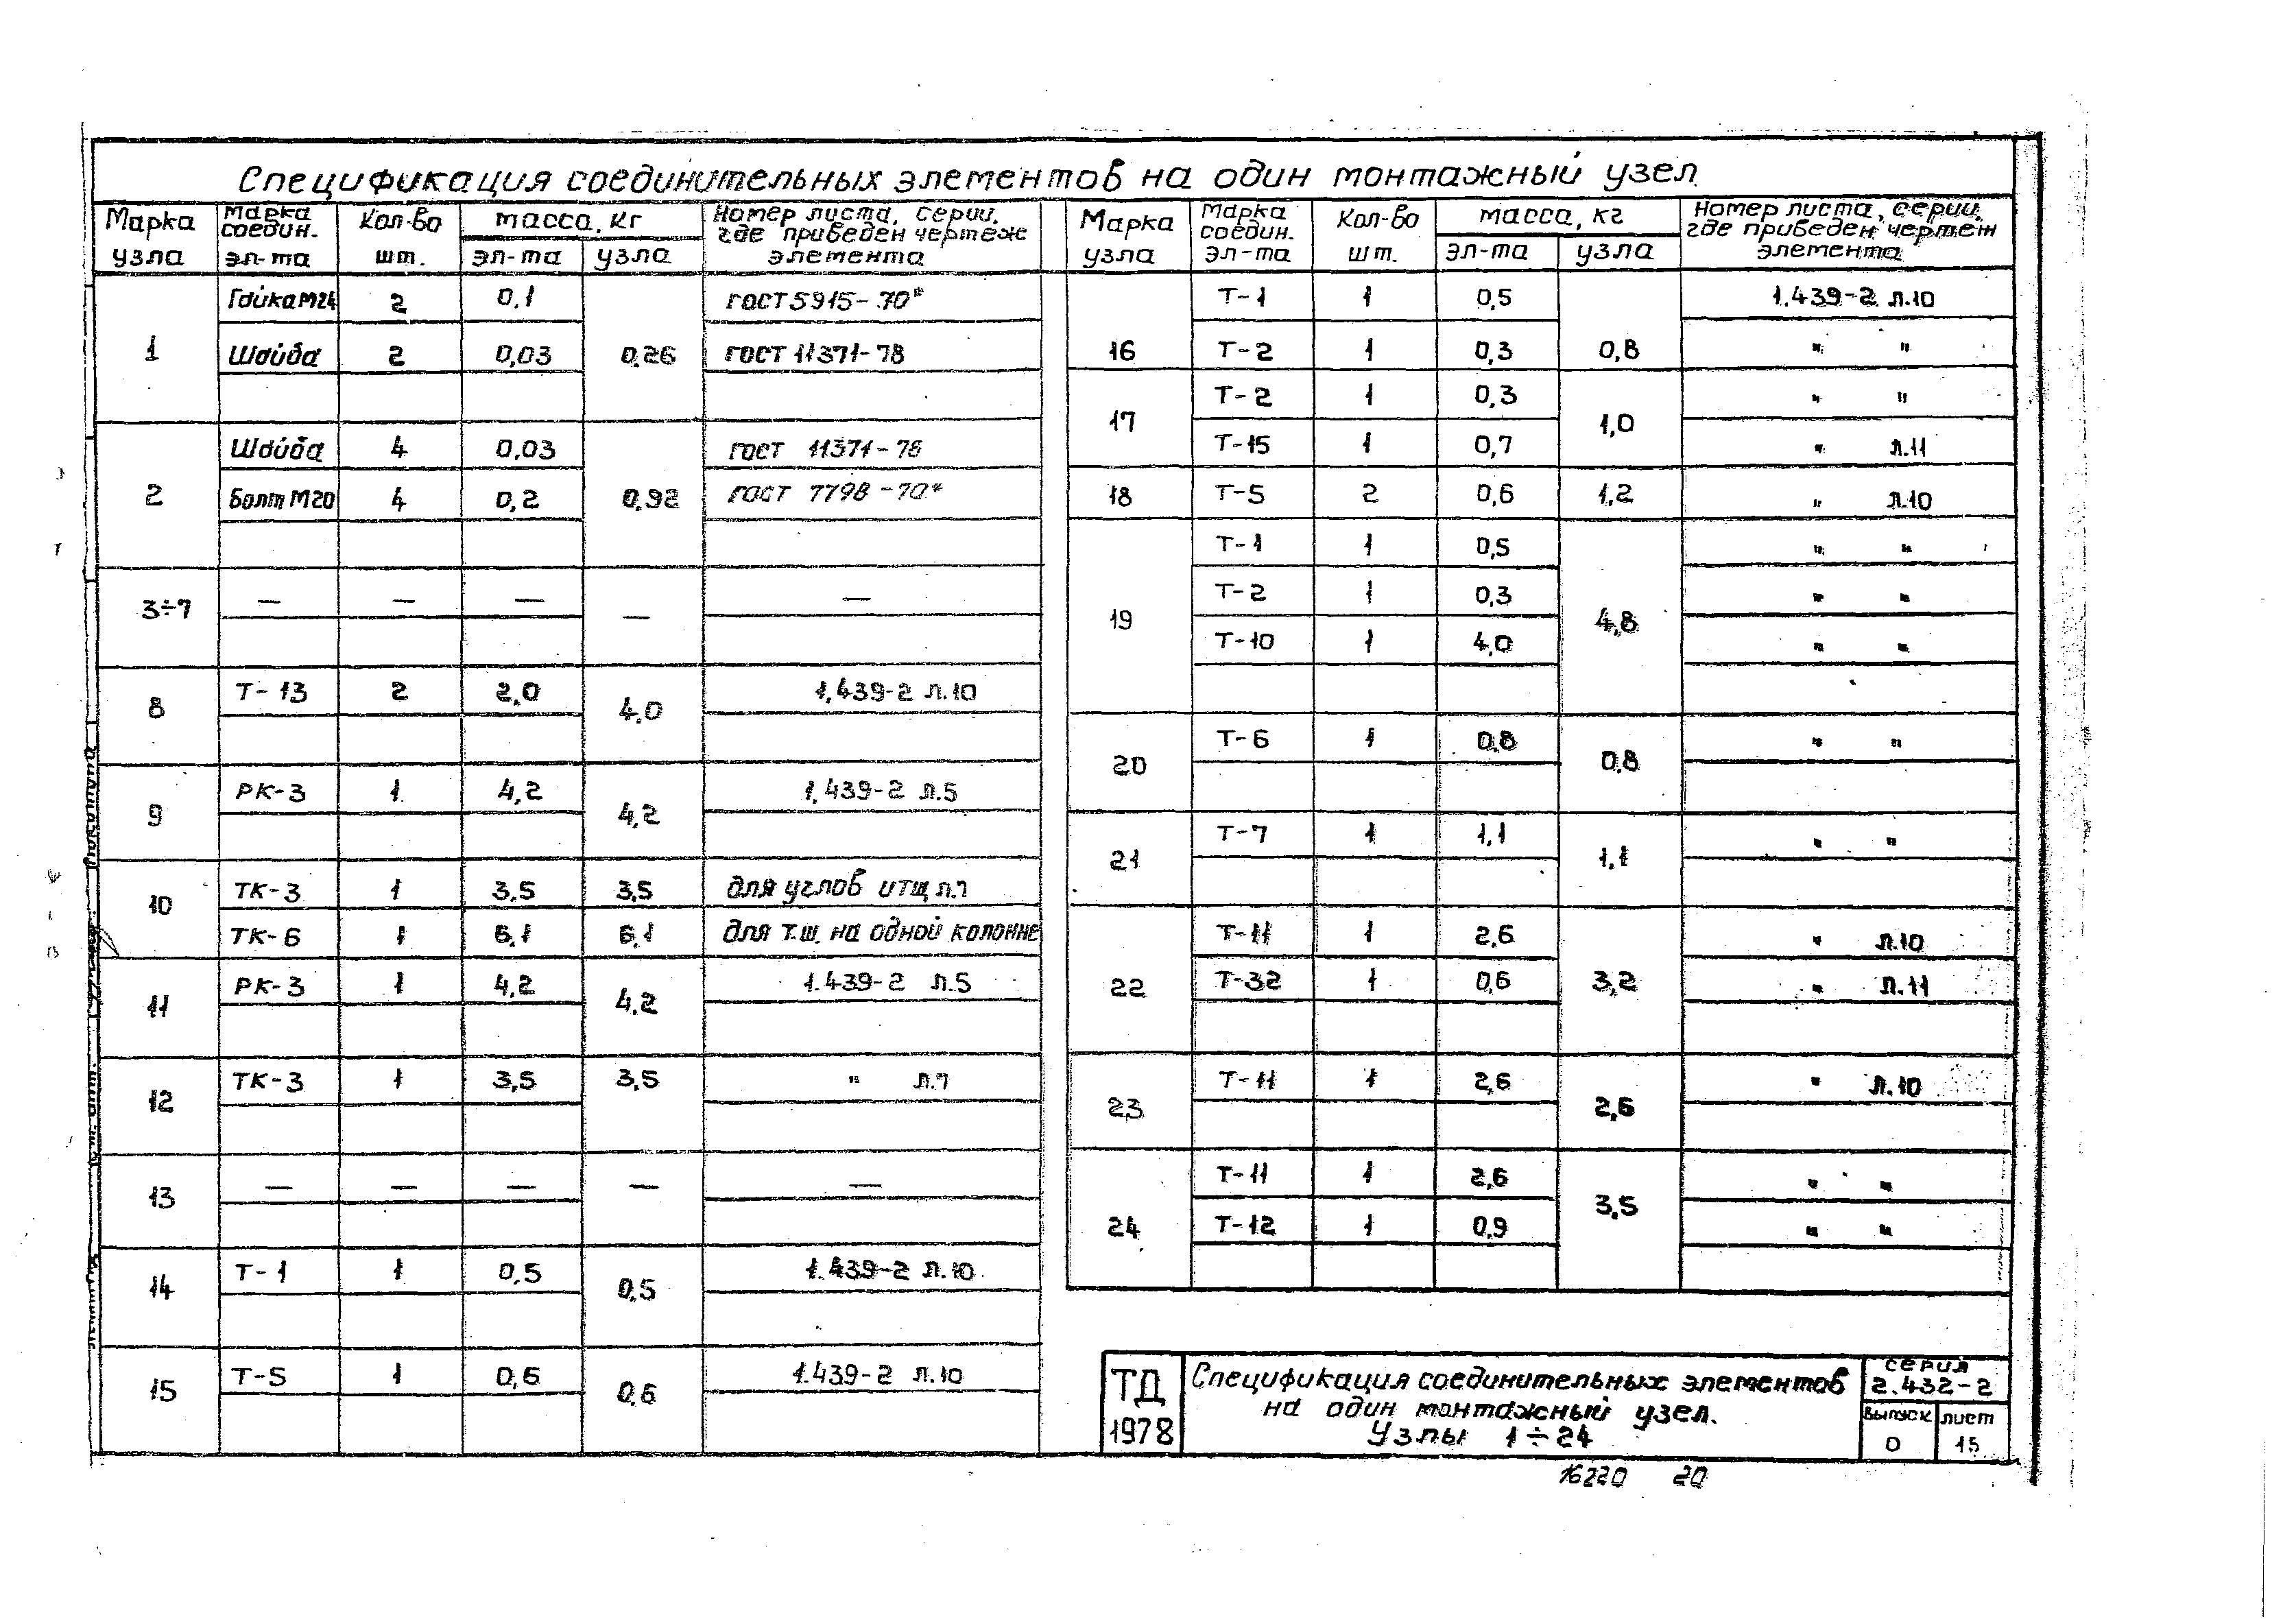 Спецификация соединительных элементов на один монтажный узел.
Марка узла | Марка соедин. эл-та | Кол-во шт. | масса, кг эл-та | узла | Номер листа, серии, где приведен чертеж элемента
1 | Гайка М24 | 2 | 0,1 | 0,26 | ГОСТ 5915-70*
Шайба | 2 | 0,03 | ГОСТ 11371-78
2 | Шайба | 4 | 0,03 | 0,92 | ГОСТ 11371-78
Болт М20 | 4 | 0,2 | ГОСТ 7798-70*
3÷7 | — | — | — | — | —
8 | Т-13 | 2 | 2,0 | 4,0 | 1.439-2 л.10
9 | РК-3 | 1 | 4,2 | 4,2 | 1.439-2 л.5
10 | ТК-3 | 1 | 3,5 | 3,5 | для углов и тщ л.7
ТК-6 | 1 | 6,1 | 6,1 | для т.ш. на одной колонне
11 | РК-3 | 1 | 4,2 | 4,2 | 1.439-2 л.5
12 | ТК-3 | 1 | 3,5 | 3,5 | " л.7
13 | — | — | — | — | —
14 | Т-1 | 1 | 0,5 | 0,5 | 1.439-2 л.10
15 | Т-5 | 1 | 0,6 | 0,6 | 1.439-2 л.10
Марка узла | Марка соедин. эл-та | Кол-во шт. | масса, кг эл-та | узла | Номер листа, серии, где приведен чертеж элемента
16 | Т-1 | 1 | 0,5 | 0,8 | 1.439-2 л.10
Т-2 | 1 | 0,3 | " "
17 | Т-2 | 1 | 0,3 | 1,0 | " "
Т-15 | 1 | 0,7 | " л.11
18 | Т-5 | 2 | 0,6 | 1,2 | " л.10
19 | Т-1 | 1 | 0,5 | 4,8 | " "
Т-2 | 1 | 0,3 | " "
Т-10 | 1 | 4,0 | " "
20 | Т-6 | 1 | 0,8 | 0,8 | " "
21 | Т-7 | 1 | 1,1 | 1,1 | " "
22 | Т-11 | 1 | 2,6 | 3,2 | " л.10
Т-32 | 1 | 0,6 | " л.11
23 | Т-11 | 1 | 2,6 | 2,6 | " л.10
24 | Т-11 | 1 | 2,6 | 3,5 | " "
Т-12 | 1 | 0,9 | " "
ТД 1978
Спецификация соединительных элементов
на один монтажный узел.
Узлы 1÷24
серия
2.432-2
выпуск лист
0 15
16220 20